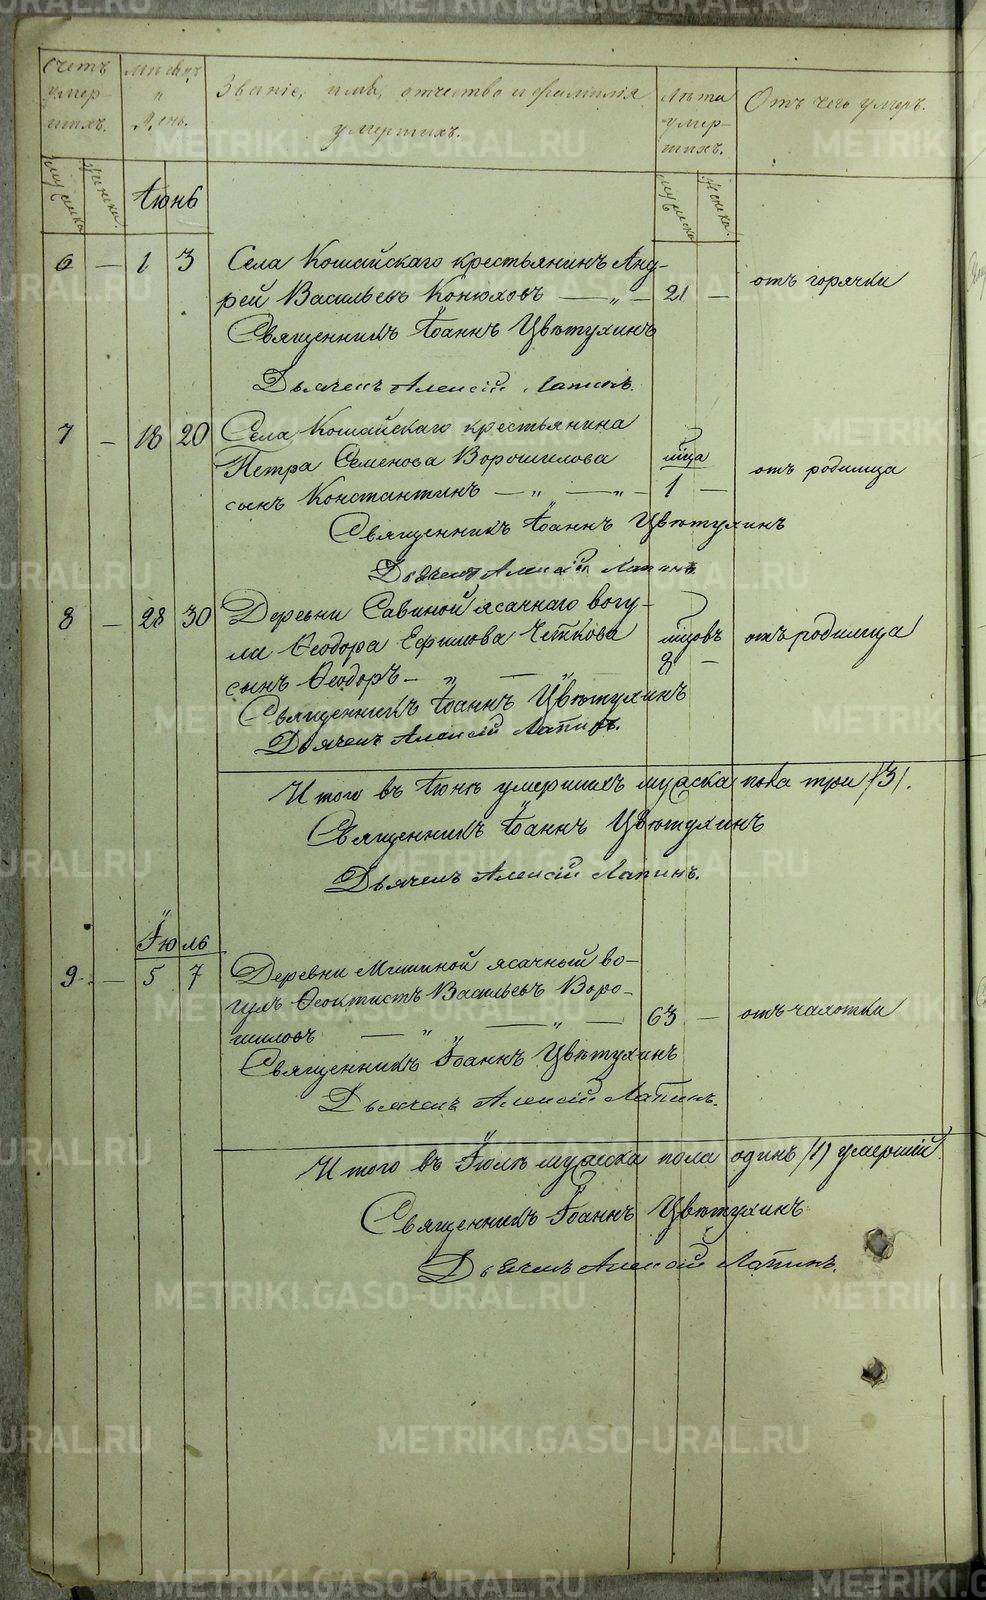 Счетъ умер-шихъ.
Мѣсяцъ и День.
Званіе, имя, отчество и фамилія умершихъ.
Лѣта умер-шихъ.
Отъ чего умеръ.
мужска
женска.
мужска
женска.
Іюнь
6 — 1 3 Села Кошайскаго крестьянинъ Анд-
рей Васильевъ Конюховъ — „ — 21 — отъ горячки
Священникъ Іоаннъ Цвѣтухинъ
Дьячекъ Алексій Лапинъ.
7 — 18 20 Села Кошайскаго крестьянина
Петра Семенова Ворошилова мѣца отъ родимца
сынъ Константинъ — „ — „ — 1 —
Священникъ Іоаннъ Цвѣтухинъ
Дьячекъ Алексій Лапинъ.
8 — 28 30 Деревни Савиной ясачнаго вогу-
ла Ѳеодора Ефимова Четкова мѣцовъ отъ родимца
сынъ Ѳеодоръ — „ — „ 8 —
Священникъ Іоаннъ Цвѣтухинъ
Дьячекъ Алексій Лапинъ.
Итого въ Іюнѣ умершихъ мужска пола три /3/.
Священникъ Іоаннъ Цвѣтухинъ
Дьячекъ Алексій Лапинъ.
Іюль
9 — 5 7 Деревни Мишиной ясачный во-
гулъ Ѳеоктистъ Васильевъ Воро-
шиловъ — „ — „ — 63 — отъ чахотки
Священникъ Іоаннъ Цвѣтухинъ
Дьячекъ Алексій Лапинъ.
Итого въ Іюлѣ мужска пола одинъ /1/ умершій.
Священникъ Іоаннъ Цвѣтухинъ
Дьячекъ Алексій Лапинъ.
METRIKI.GASO-URAL.RU